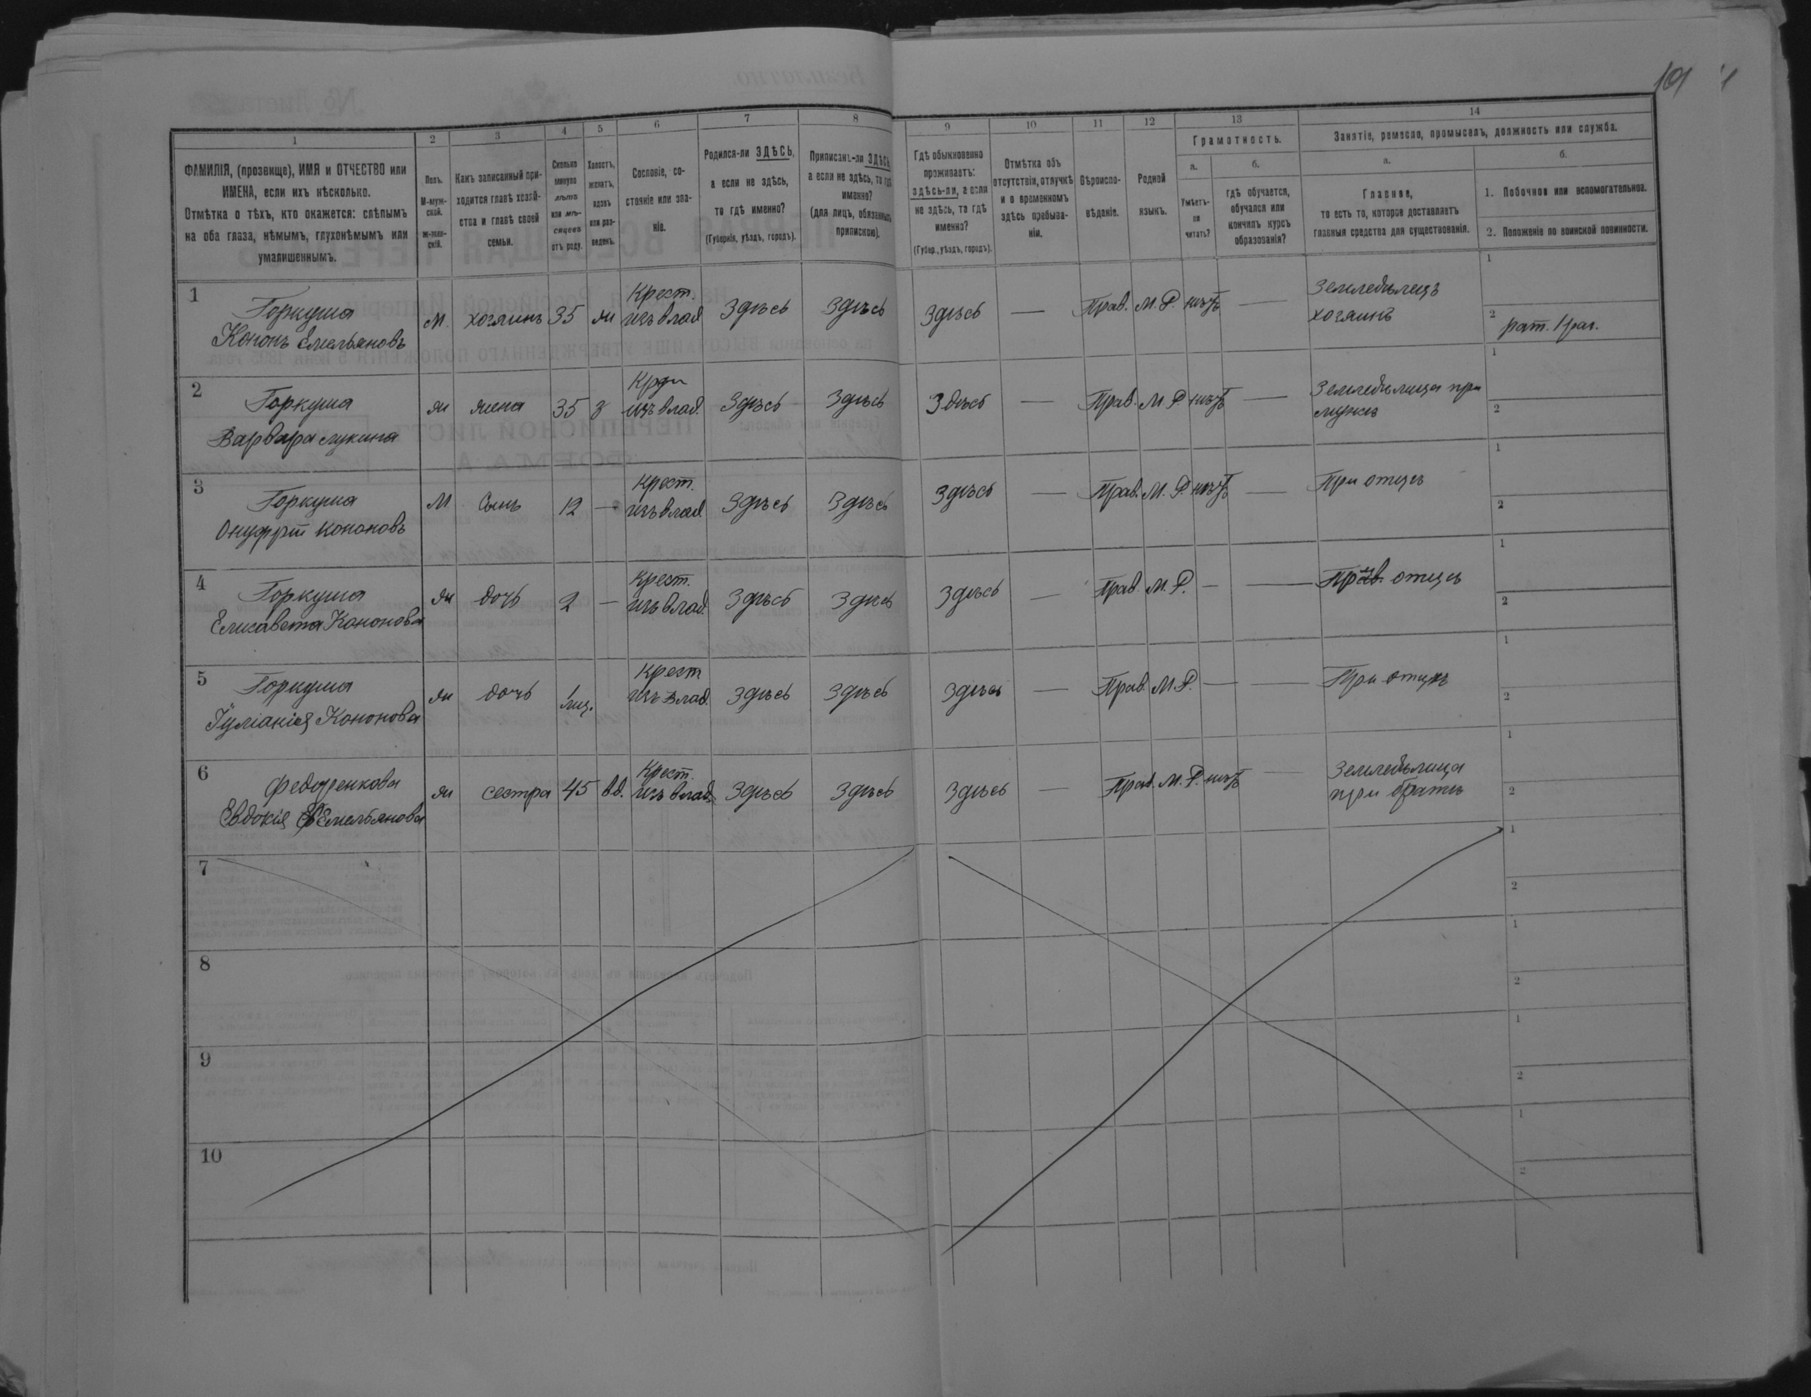 101
1 2 3 4 5 6 7 8 9 10 11 12 13 14
ФАМИЛІЯ, (прозвище), ИМЯ и ОТЧЕСТВО или
ИМЕНА, если ихъ нѣсколько.
Отмѣтка о тѣхъ, кто окажется: слѣпымъ
на оба глаза, нѣмымъ, глухонѣмымъ или
умалишеннымъ.
Полъ.
М-муж-
ской.
Ж-жен-
скій.
Какъ записанный при-
ходится главѣ хозяй-
ства и главѣ своей
семьи.
Сколько
минуло
лѣтъ
или мѣ-
сяцевъ
отъ роду.
Холостъ,
женатъ,
вдовъ
или раз-
веденъ.
Сословіе, со-
стояніе или зва-
ніе.
Родился-ли ЗДѢСЬ,
а если не здѣсь,
то гдѣ именно?
(Губернія, уѣздъ, городъ).
Приписанъ-ли ЗДѢСЬ,
а если не здѣсь, то гдѣ
именно?
(для лицъ, обязанныхъ
припискою).
Гдѣ обыкновенно
проживаетъ:
здѣсь-ли, а если
не здѣсь, то гдѣ
именно?
(Губер., уѣздъ, городъ).
Отмѣтка объ
отсутствіи, отлучкѣ
и о временномъ
здѣсь пребыва-
ніи.
Вѣроиспо-
вѣданіе.
Родной
языкъ.
Грамотность.
а.
Умѣетъ-
ли
читать?
б.
гдѣ обучается,
обучался или
кончилъ курсъ
образованія?
Занятіе, ремесло, промыселъ, должность или служба.
а.
Главное,
то есть то, которое доставляетъ
главныя средства для существованія.
б.
1. Побочное или вспомогательное.
2. Положеніе по воинской повинности.
1 Горкуша Крест. Земледѣлецъ 1
Кононъ Емельяновъ м. хозяинъ 35 ж изъ влад. Здѣсь Здѣсь Здѣсь — Прав. М. Р. нѣтъ — хозяинъ 2 рат. 1 раз.
2 Горкуша Земледѣлица при 1
Варвара Лукина ж жена 35 з изъ влад. Здѣсь Здѣсь Здѣсь — Прав. М. Р нѣтъ — мужѣ 2
3 Горкуша Крест. При отцѣ 1
Онуфрій Кононовъ М Сынъ 12 — изъ влад. Здѣсь Здѣсь Здѣсь — Прав. М. Р. нѣтъ — 2
4 Горкуша Крест. При отцѣ 1
Елисавета Кононова ж дочь 2 — изъ влад. Здѣсь Здѣсь Здѣсь — Прав. М. Р. — — 2
5 Горкуша Крест При отцѣ 1
Іуліанія Кононова ж дочь 1 мц. изъ влад. Здѣсь Здѣсь Здѣсь — Прав. М. Р. — — 2
6 Федоренкова Крест. Земледѣлица 1
Евдокія Емельянова ж сестра 45 вд. изъ влад. Здѣсь Здѣсь Здѣсь — Прав. М. Р. нѣтъ — при братѣ 2
7 1
2
8 1
2
9 1
2
10 1
2